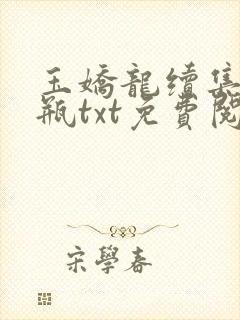 玉嬌龍續集
瓶txt免費閱
宋學春